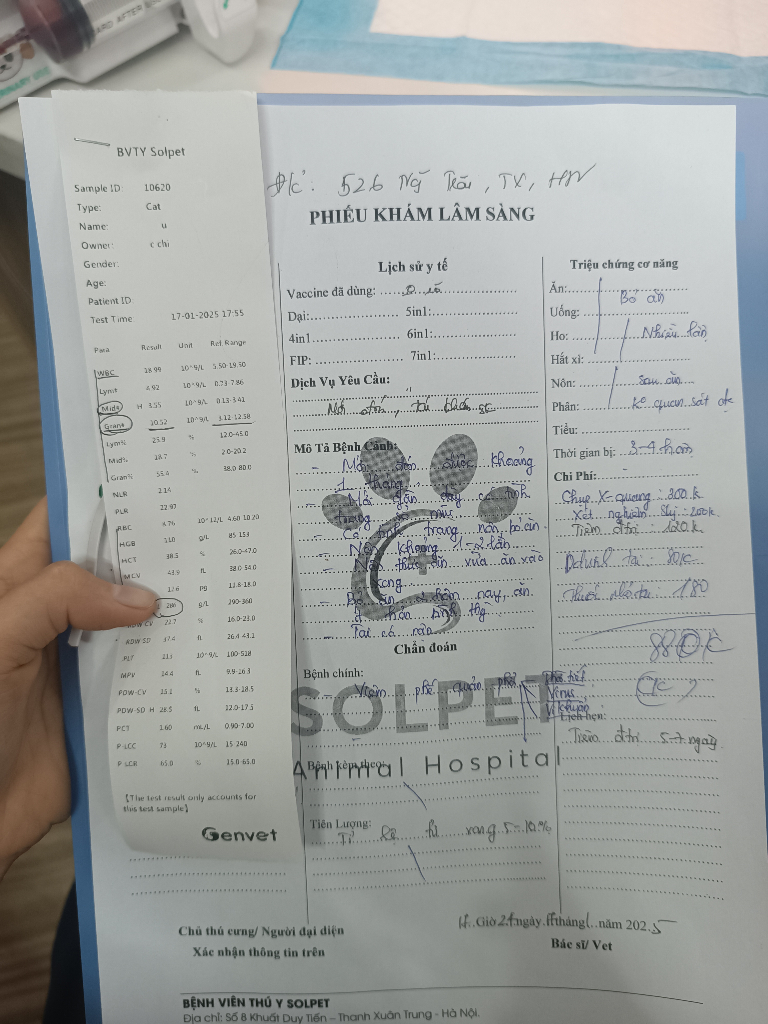 BVTY Solpet
Sample ID: 10620
Type: Cat
Name: u
Owner: c chi
Gender:
Age:
Patient ID:
Test Time: 17-01-2025 17:55
Para Result Unit Ref. Range
WBC 18.99 10^9/L 5.50-19.50
Lym# 4.92 10^9/L 0.73-7.86
Mid# H 3.55 10^9/L 0.13-3.41
Gran# 10.52 10^9/L 3.12-12.58
Lym% 25.9 % 12.0-45.0
Mid% 18.7 % 2.0-20.2
Gran% 55.4 % 38.0-80.0
NLR 2.14
PLR 22.97
RBC 8.76 10^12/L 4.60-10.20
HGB 110 g/L 85-153
HCT 38.5 % 26.0-47.0
MCV 43.9 fL 38.0-54.0
pg 11.8-18.0
286 g/L 290-360
RDW-CV 22.7 % 16.0-23.0
RDW-SD 37.4 fL 26.4-43.1
PLT 10^9/L 100-518
MPV 14.4 fL 9.9-16.3
PDW-CV 15.1 % 13.3-18.5
PDW-SD H 28.5 fL 12.0-17.5
PCT 1.60 mL/L 0.90-7.00
P-LCC 73 10^9/L 15-240
P-LCR 65.0 % 15.0-65.0
【The test result only accounts for
this test sample】
Genvet
Đ/c: 526 Ng Trãi, TX, HN
PHIẾU KHÁM LÂM SÀNG
Lịch sử y tế
Vaccine đã dùng:
Dại: 5in1:
4in1 6in1:
FIP: 7in1:
Dịch Vụ Yêu Cầu:
Mô Tả Bệnh Cảnh:
- Mới đón được khoảng
1 tháng
- Mới gần đây có tình
trạng
- Có tình trạng nôn, bỏ ăn
- Nôn khoảng 1-2 lần
- Nôn thức ăn vừa ăn vào
xong
- Bỏ ăn hôm nay,
- Tai có rận
Chẩn đoán
Bệnh chính:
- Viêm phế quản phổi
Virus
Vi khuẩn
SOLPET
Animal Hospital
Bệnh kèm theo:
Tiên Lượng:
5-10%
Triệu chứng cơ năng
Ăn: Bỏ ăn
Uống:
Ho: Nhiều lần
Hắt xì:
Nôn: sau ăn
Phân: ko quan sát đc
Tiểu:
Thời gian bị: 3-4 hôm
Chi Phí:
Chụp X-quang: 200k
Xét nghiệm 200k
Tiêm đtri: 120k
80k
180
880k
CK
Lịch hẹn:
Tiêm đtri 5-7 ngày
Giờ ngày tháng năm 2025
Chủ thú cưng/ Người đại diện
Xác nhận thông tin trên
Bác sĩ/ Vet
BỆNH VIỆN THÚ Y SOLPET
Địa chỉ: Số 8 Khuất Duy Tiến – Thanh Xuân Trung - Hà Nội.